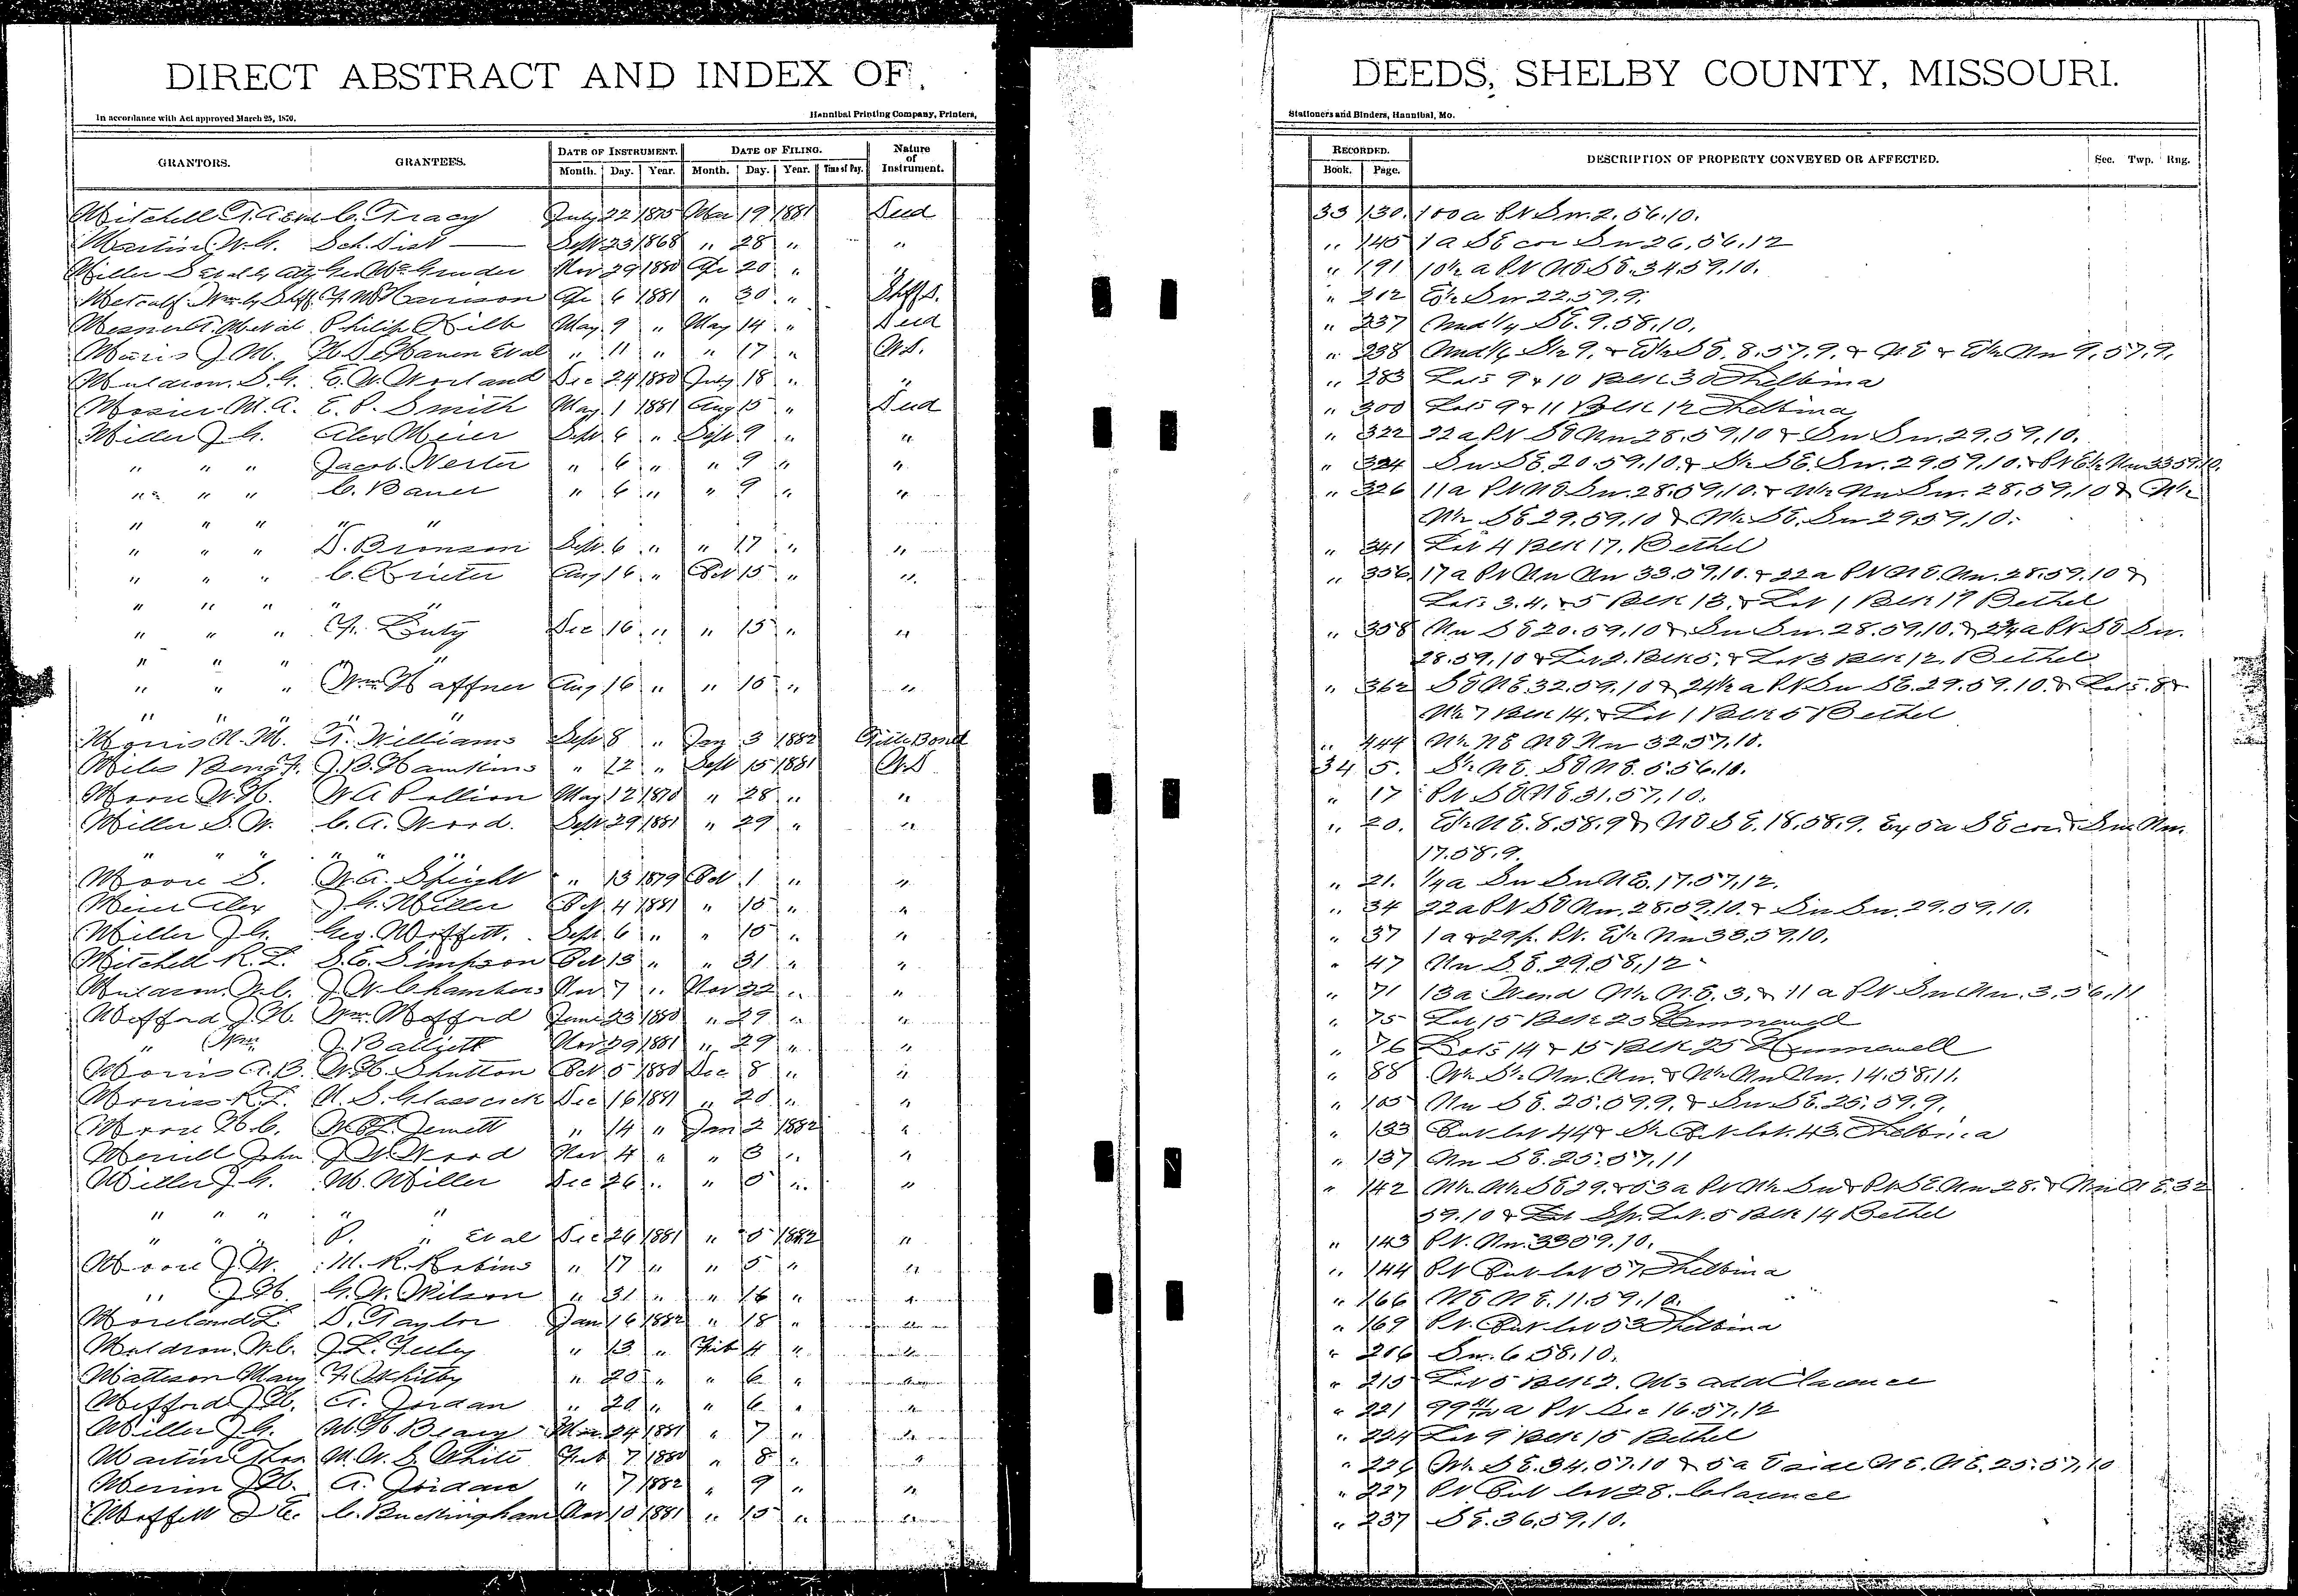 DIRECT ABSTRACT AND INDEX OF
DEEDS, SHELBY COUNTY, MISSOURI.
In accordance with Act approved March 25, 1870.
Hannibal Printing Company, Printers,
Stationers and Binders, Hannibal, Mo.
GRANTORS. GRANTEES. DATE OF INSTRUMENT. DATE OF FILING. Nature of Instrument. RECORDED. DESCRIPTION OF PROPERTY CONVEYED OR AFFECTED. Sec. Twp. Rng.
Month. Day. Year. Month. Day. Year. Time of Day. Book. Page.
Mitchell T. A. C. Tracy July 22 1875 Mar 19 1881 Deed 33 130. 100 a Pt Sw. 2. 56. 10.
Martin W. G. Sch. Dist Sept 23 1868 " 28 " " " 145 1 a SE cor Sw 26, 56, 12
Miller Geo McGruder Nov 29 1880 Apr 20 " " " 191 10½ a Pt NE SE. 34. 59. 10.
Metcalf Wm by Shff. Harrison Apr 6 1881 " 30 " Shff D. " 212 E½ Sw 22. 59. 9.
Philip Kilb May 9 " May 14 " Deed " 237 Und ¼ SE. 9. 58. 10.
J. M. DeHaven Et al " 11 " " 17 " W.D. " 238 Und 1/6 S½ 9. & E½ SE. 8. 57. 9. & NE & E½ Nw 9. 57. 9.
Muldrow. S. G. E. W. Worland Dec 24 1880 July 18 " " " 283 Lots 9 & 10 Blk 30 Shelbina
Mosier M. A. E. P. Smith May 1 1881 Aug 15 " Deed " 300 Lots 9 & 11 Blk 12 Shelbina
Miller J. G. Alex Meier Sept 6 " Sept 9 " " " 322 22 a Pt SE Nw 28. 59. 10 & Sw Sw. 29. 59. 10.
" " " Jacob Werter " 6 " " 9 " " " 324 Sw SE. 20. 59. 10. & S½ SE. Sw. 29. 59. 10. & Pt E½ Nw 33 59. 10.
" " " C. Bauer " 6 " " 9 " " " 326 11 a Pt NE Sw. 28. 59. 10. & W½ Nw Sw. 28. 59. 10 & N½
" " " " " W½ SE 29. 59. 10 & W½ SE. Sw 29 59. 10.
" " " D. Bronson Sept. 6 " " 17 " " " 341 Lot 4 Blk 17. Bethel
" " " C. Aug 16 " Oct 15 " " " 356 17 a Pt Nw Nw 33. 59. 10. & 22 a Pt NE. Nw. 28. 59. 10 &
" " " " " Lots 3. 4. & 5 Blk 13. & Lot 1 Blk 17 Bethel
" " " Dec 16 " " 15 " " " 358 Nw SE 20. 59. 10 & Sw Sw. 28. 59. 10. & 2¾ a Pt SE Sw.
" " " " 28. 59. 10 & Lot 2. Blk 5. & Lot 3 Blk 12. Bethel
" " " Wm Haffner Aug 16 " " 15 " " " 362 SE NE. 32. 59. 10 & 24½ a Pt Sw SE. 29. 59. 10. & Lots 8 &
" " " " " W½ 7 Blk 14. & Lot 1 Blk 5 Bethel
Morris N. M. T. Williams Sept 8 " Jan 3 1882 Title Bond " 444 W½ NE NE Nw 32. 57. 10.
Miles Benj F. J. B. Hawkins " 12 " Sept 15 1881 W.D 34 5. S½ NE. SE NE. 5. 56. 10.
Moore W. H. W A Pollion May 12 1870 " 28 " " " 17 Pt SE NE. 31. 57. 10.
Miller S. W. C. A. Wood. Sept 29 1881 " 29 " " " 20. E½ NE. 8. 58. 9 & NE SE. 18. 58. 9. Ex 5 a SE cor & Sw Nw.
" " " " " " 17. 58. 9.
Moore S. W. A. Speight " 13 1879 Oct 1 " " " 21. ¼ a Sw Sw NE. 17. 57. 12.
Meier Alex J. G. Miller Oct 4 1881 " 15 " " " 34 22 a Pt SE Nw. 28. 59. 10. & Sw Sw. 29. 59. 10.
Miller J. G. Geo. Moffett. Sept. 6 " " 15 " " " 37 1 a & 29 p. Pt. E½ Nw 33. 59. 10.
Mitchell R. L. S. E. Simpson Oct 13 " " 31 " " " 47 Nw SE. 29. 58. 12
Muldrow. W. C. J W Chambers Nov 7 " Nov 22 " " " 71 13 a W end N½ NE. 3. & 11 a Pt Sw Nw. 3. 56. 11
Mofford J. H. Wm. Mofford June 23 1880 " 29 " " " 75 Lot 15 Blk 25 Hunnewell
" Wm J. Balliett Nov 29 1881 " 29 " " " 76 Lots 14 & 15 Blk 25 Hunnewell
Morris A. B. W. H. Shutton Oct 5 1880 Dec 8 " " " 88 W½ S½ Nw. Nw. & N½ Nw Nw. 14. 58. 11.
Morriss R. L. N. S. Glascock Dec 16 1881 " 20 " " " 105 Nw SE. 25. 59. 9. & Sw SE. 25. 59. 9.
Moore H. C. Jewett " 14 " Jan 2 1882 " " 133 Out lot 44 & S½ Out lot. 43. Shelbina
Merrill John J W Wood Nov 4 " " 3 " " " 137 Nw SE. 25. 57. 11
Miller J. G. M. Miller Dec 26 " " 5 " " " 142 W½ N½ SE 29. & 53 a Pt N½ Sw & Pt SE. Nw 28. & Nw NE. 32
" " " " " 59. 10 & Lot 5 Blk 14 Bethel
" " " P. " Et al Dec 26 1881 " 5 1882 " " 143 Pt. Nw. 33 59. 10.
Moore J. W. M. R. Robins " 17 " " 5 " " " 144 Pt Out lot 57 Shelbina
" J. H. G. W. Wilson " 31 " " 16 " " " 166 NE NE. 11. 59. 10.
Moreland L D. Taylor Jan 16 1882 " 18 " " " 169 Pt. Out lot 53 Shelbina
Muldrow. W. C. J. L. Feeley " 13 " Feb 4 " " " 206 Sw. 6 58. 10.
Matteson Mary F. Whitby " 20 " " 6 " " " 215 Lot 5 Blk 2. add Clarence
Mefford J. H. A. Jordan " 20 " " 6 " " " 221 99 a Pt Sec 16. 57. 12
Miller J. G. Beary Mar 24 1881 " 7 " " " 224 Lot 9 Blk 15 Bethel
Martin Thos M. W. S. White Feb 7 1880 " 8 " " " 226 W½ SE. 34. 57. 10 & 5 a E side NE. NE. 25. 57. 10
J. H. A. Jordan " 7 1882 " 9 " " " 227 Pt Out lot 28. Clarence
Moffett C. Buckingham Nov 10 1881 " 15 " " " 237 SE. 36. 59. 10.